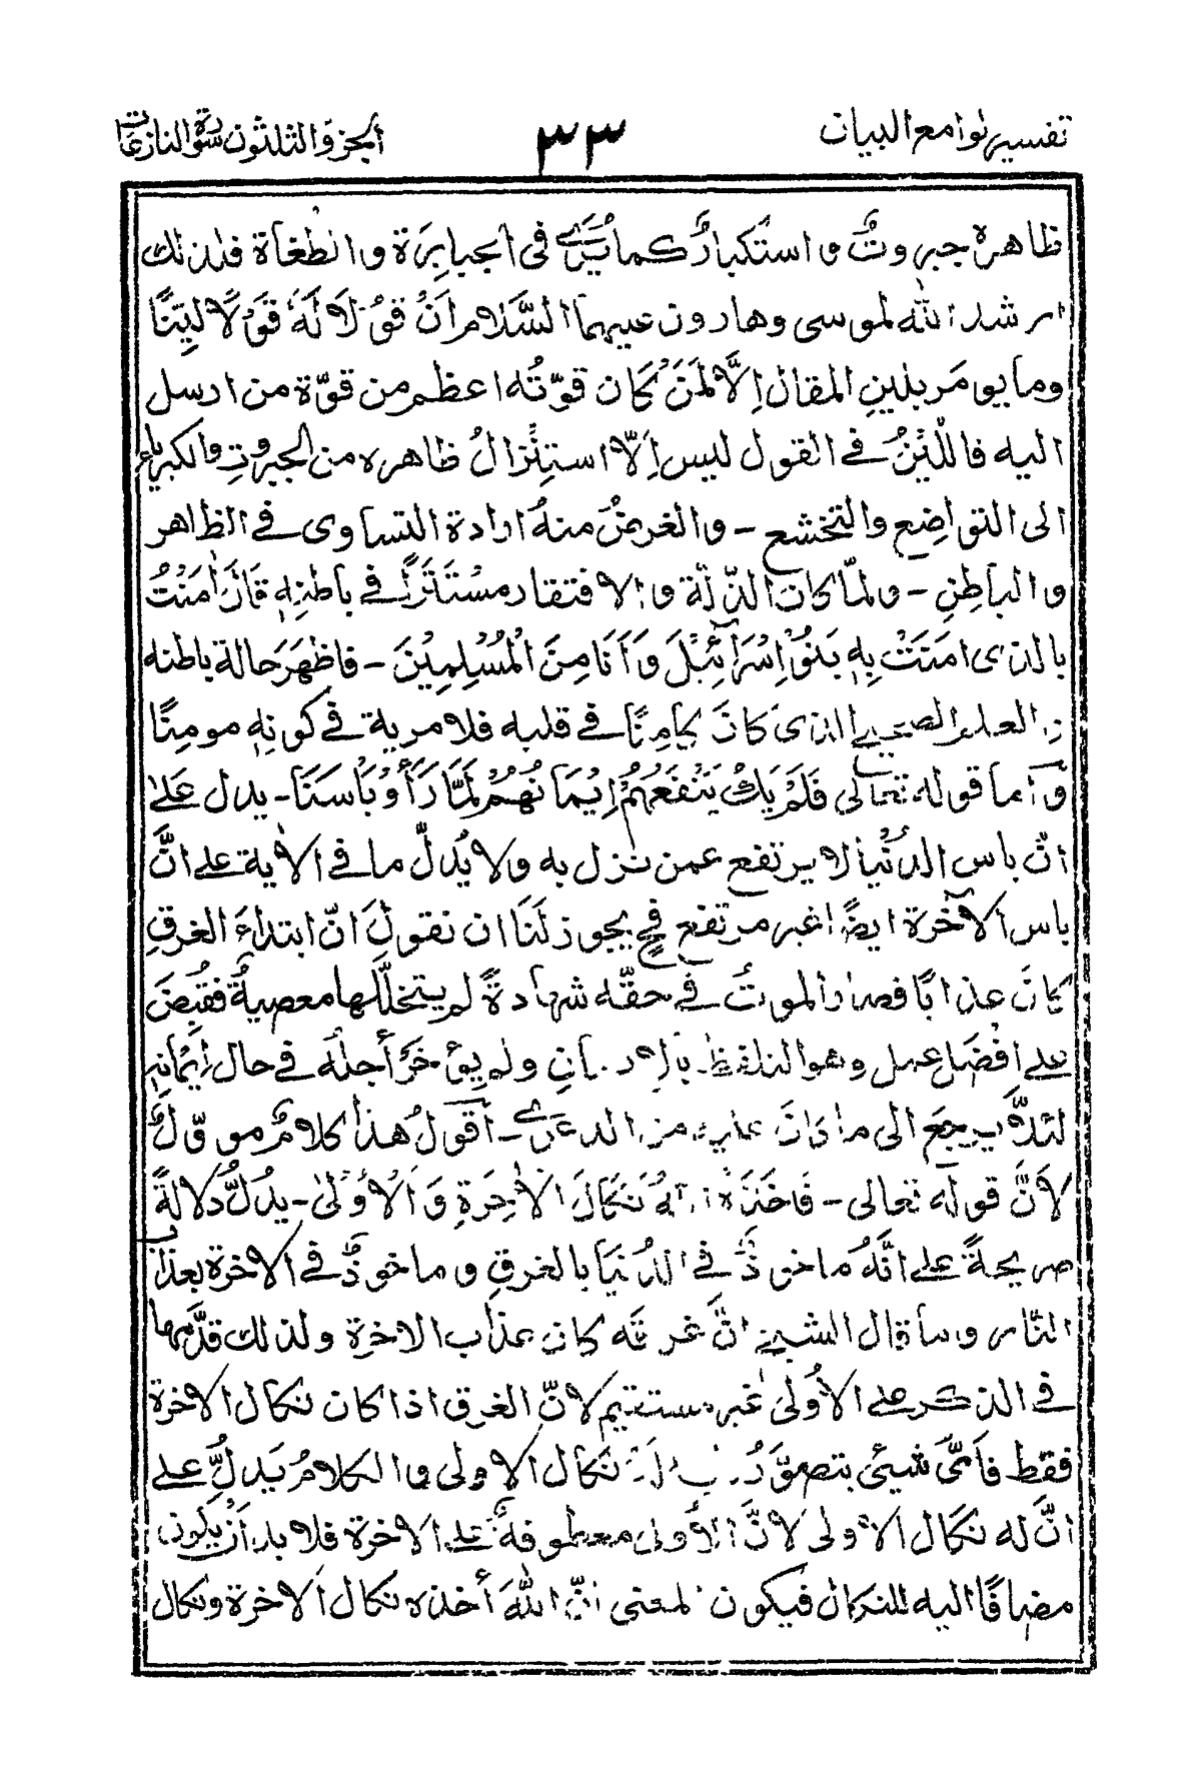 تفسير لوامع البيان ٣٣ الجزء الثلثون سورة النازعات
ظاهره جبروتٌ و استكبارٌ كما يُرَى فى الجبابِرَة والطغاة فلذلك
ارشد الله لموسى وهارون عليهما السَّلام اَنْ قُوْلَا لَهٗ قَوْلًا لَيِّنًا
وما يومَر بلينِ المقال اِلَّا لمَنْ كان قوّتُه اعظم من قوّة من ارسل
اليه فاللّيْنُ فى القول ليس اِلّا استِنْزالُ ظاهره من الجبروتِ والكبرياء
الى التواضِع والتخشع - والغرضُ منهُ ارادة التساوى فى الظاهر
و الباطِنِ - ولمّا كان الذّلّة و الافتقار مستَتَرًا فى باطنِهٖ قَالَ اٰمَنْتُ
بالذى اٰمَنَتْ بِهٖ بَنُوْ اِسْرَآئِيْلَ وَ اَنَا مِنَ الْمُسْلِمِيْنَ - فاظهَرَ حالة باطنه
العلم الصحيح الذى كَانَ كامِنًا فى قلبه فلا مرية فى كونِهٖ مومِنًا
وَ اما قوله تعالى فَلَمْ يَكُ يَنْفَعُهُمْ اِيْمَانُهُمْ لَمَّا رَأَوْ بَاسَنَا - يدل عَلىٰ
انّ باس الدُنْيا لا يرتفع عمن نزل به ولا يُدلّ ما فى الاٰية على انَّ
باس الآخرة ايضًا غير مرتفع فح يجوز لَنَا ان نقولَ انّ ابتداءَ الغرقِ
كانَ عذابًا فصار الموتُ فى حقّه شهادةً لم يتخلّلها معصيةٌ فقُبِضَ
على افضَل عمل وهو التلفظ ولم يؤخَرْ أجلُه فى حال اِيْمانِهٖ
لئلّا يرجعَ الى ما كَانَ عليه من الدعوى - أقُولُ هٰذا كلامٌ موولٌ
لاَنَّ قوله تعالى - فَاَخَذَهُ اللهُ نَكَالَ الْاٰخِرَةِ وَ الْاُوْلىٰ - يدُلُّ دلالةً
صريحةً على انَّهُ ماخوذٌ فى الدُنيَا بالغرقِ و ماخوذٌ فى الاخرة بعذاب
النّار و ما قال الشيخ انَّ غرقه كان عذاب الاخرة ولذلك قدَّمها
فى الذكر على الأُولىٰ غير مستقيم لانّ الغرق اذا كان نكال الاخرة
فقط فاَىّ شيئى يتصوَّرُ نكال الاولى والكلامُ يَدلُّ على
انَّ له نكال الاولى لانَّ الأولى معطوفةٌ على الاخرة فلا بد اَنْ يكون
مضافًا اليه للنكال فيكون المعنى انّ اللهَ أخذه نكال الاخرة ونكال